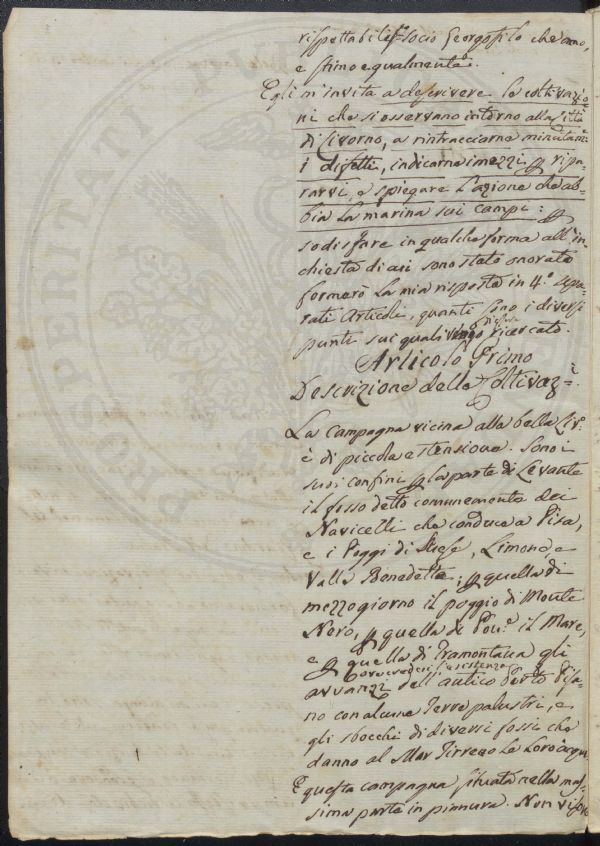 rispettabiliss.º socio Georgofilo che amo,
e stimo egualmente.
Egli m'invita a descrivere le coltivazio=
ni che si osservano intorno alla Città
di Livorno, a rintracciarne minutam:
i difetti, indicarne i mezzi p ripa=
rarvi, e spiegare l'azione che ab=
bia la marina sui campi: p
sodisfare in qualche forma all'in=
chiesta di cui sono stato onorato
formerò la mia risposta in 4.º sepa=
rati Articoli, quanti sono i diversi
punti sui quali vengo ricercato.
Articolo Primo
Descrizione delle Coltivaz.i
La campagna vicina alla bella Liv.º
è di piccola estensione. Sono i
suoi confini p la parte di Levante
il fosso detto comunemente dei
Navicelli che conduce a Pisa,
e i Poggi di Suese, Limone, e
Valle Benedetta; p quella di
mezzogiorno il poggio di Monte
Nero, p quella di Pon.e il Mare,
e p quella di Tramontana gli
ove credesi l'esistenza
avvanzi dell'antico Porto Pisa=
no con alcune Terre palustri, e
gli sbocchi di diversi fossi che
danno al Mar Tirreno le loro acque.
E questa campagna situata nella mas=
sima parte in pianura. Non vi sono